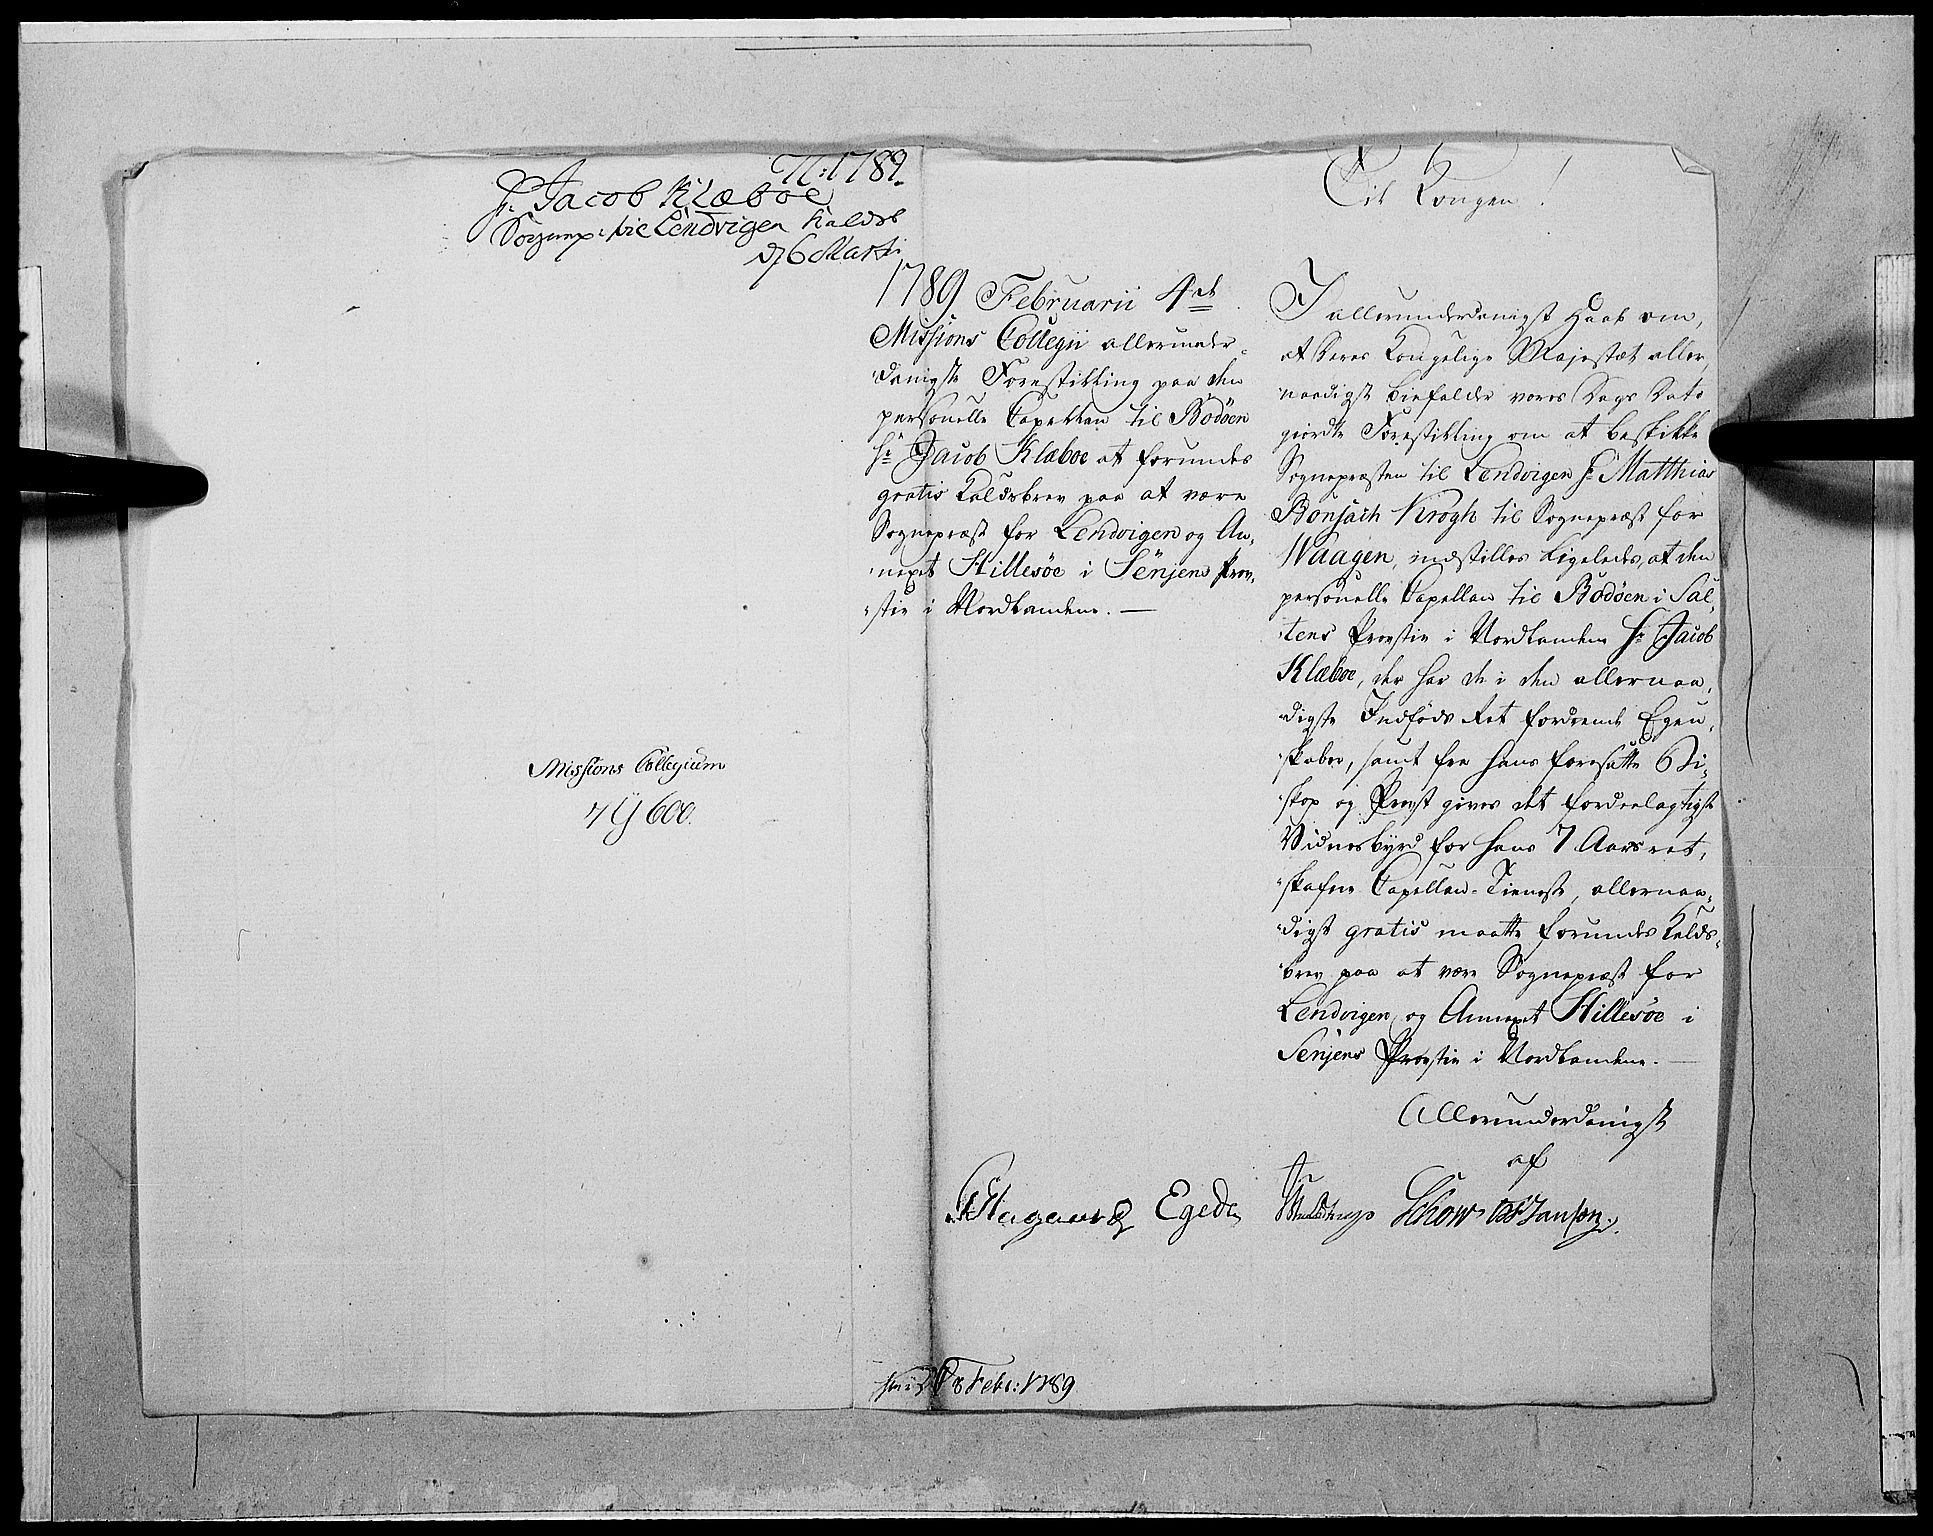 N: 1789.
Hr. Jacob Klæboe
Sognep: til Lendvigen Kaldsb
d 6 Marti
Missions Collegium
1789 Februarii 4de
Missions Collegii allerunder-
danigste Forestilling paa den
personelle Capellan til Bodöen
Hr. Jacob Klæboe at forundes
gratis Kaldsbrev paa at være
Sognepræst for Lendvigen og An-
nexet Hillesöe i Senjens Prov-
stie i Nordlandene. —
Til Kongen!
I allerunderdanigst Haab om,
at Deres Kongelige Majestæt aller-
naadigst bifalder vores Dags Dato
giordte Forestilling om at beskikke
Sognepræsten til Lendvigen Hr. Matthias
Bonsach Krogh til Sognepræst for
Waagen, indstilles ligeledes, at den
personelle Capellan til Bodöen i Sal-
tens Provstie i Nordlandene Hr. Jacob
Klæboe, der har de i den allernaa-
digste Indföds Ret fordrende Egen-
skaber, samt fra hans foresatte Bi-
skop og Provst gives det fordeelagtigste
Vidnesbyrd for hans 7 Aars ret-
skafne Capellan-Tieneste, allernaa-
digst gratis maatte forundes Kalds-
brev paa at være Sognepræst for
Lendvigen og Annexet Hillesöe i
Senjens Provstie i Nordlandene. —
Allerunderdanigst
af
Egede
Schow Janson.
8 Febr: 1789